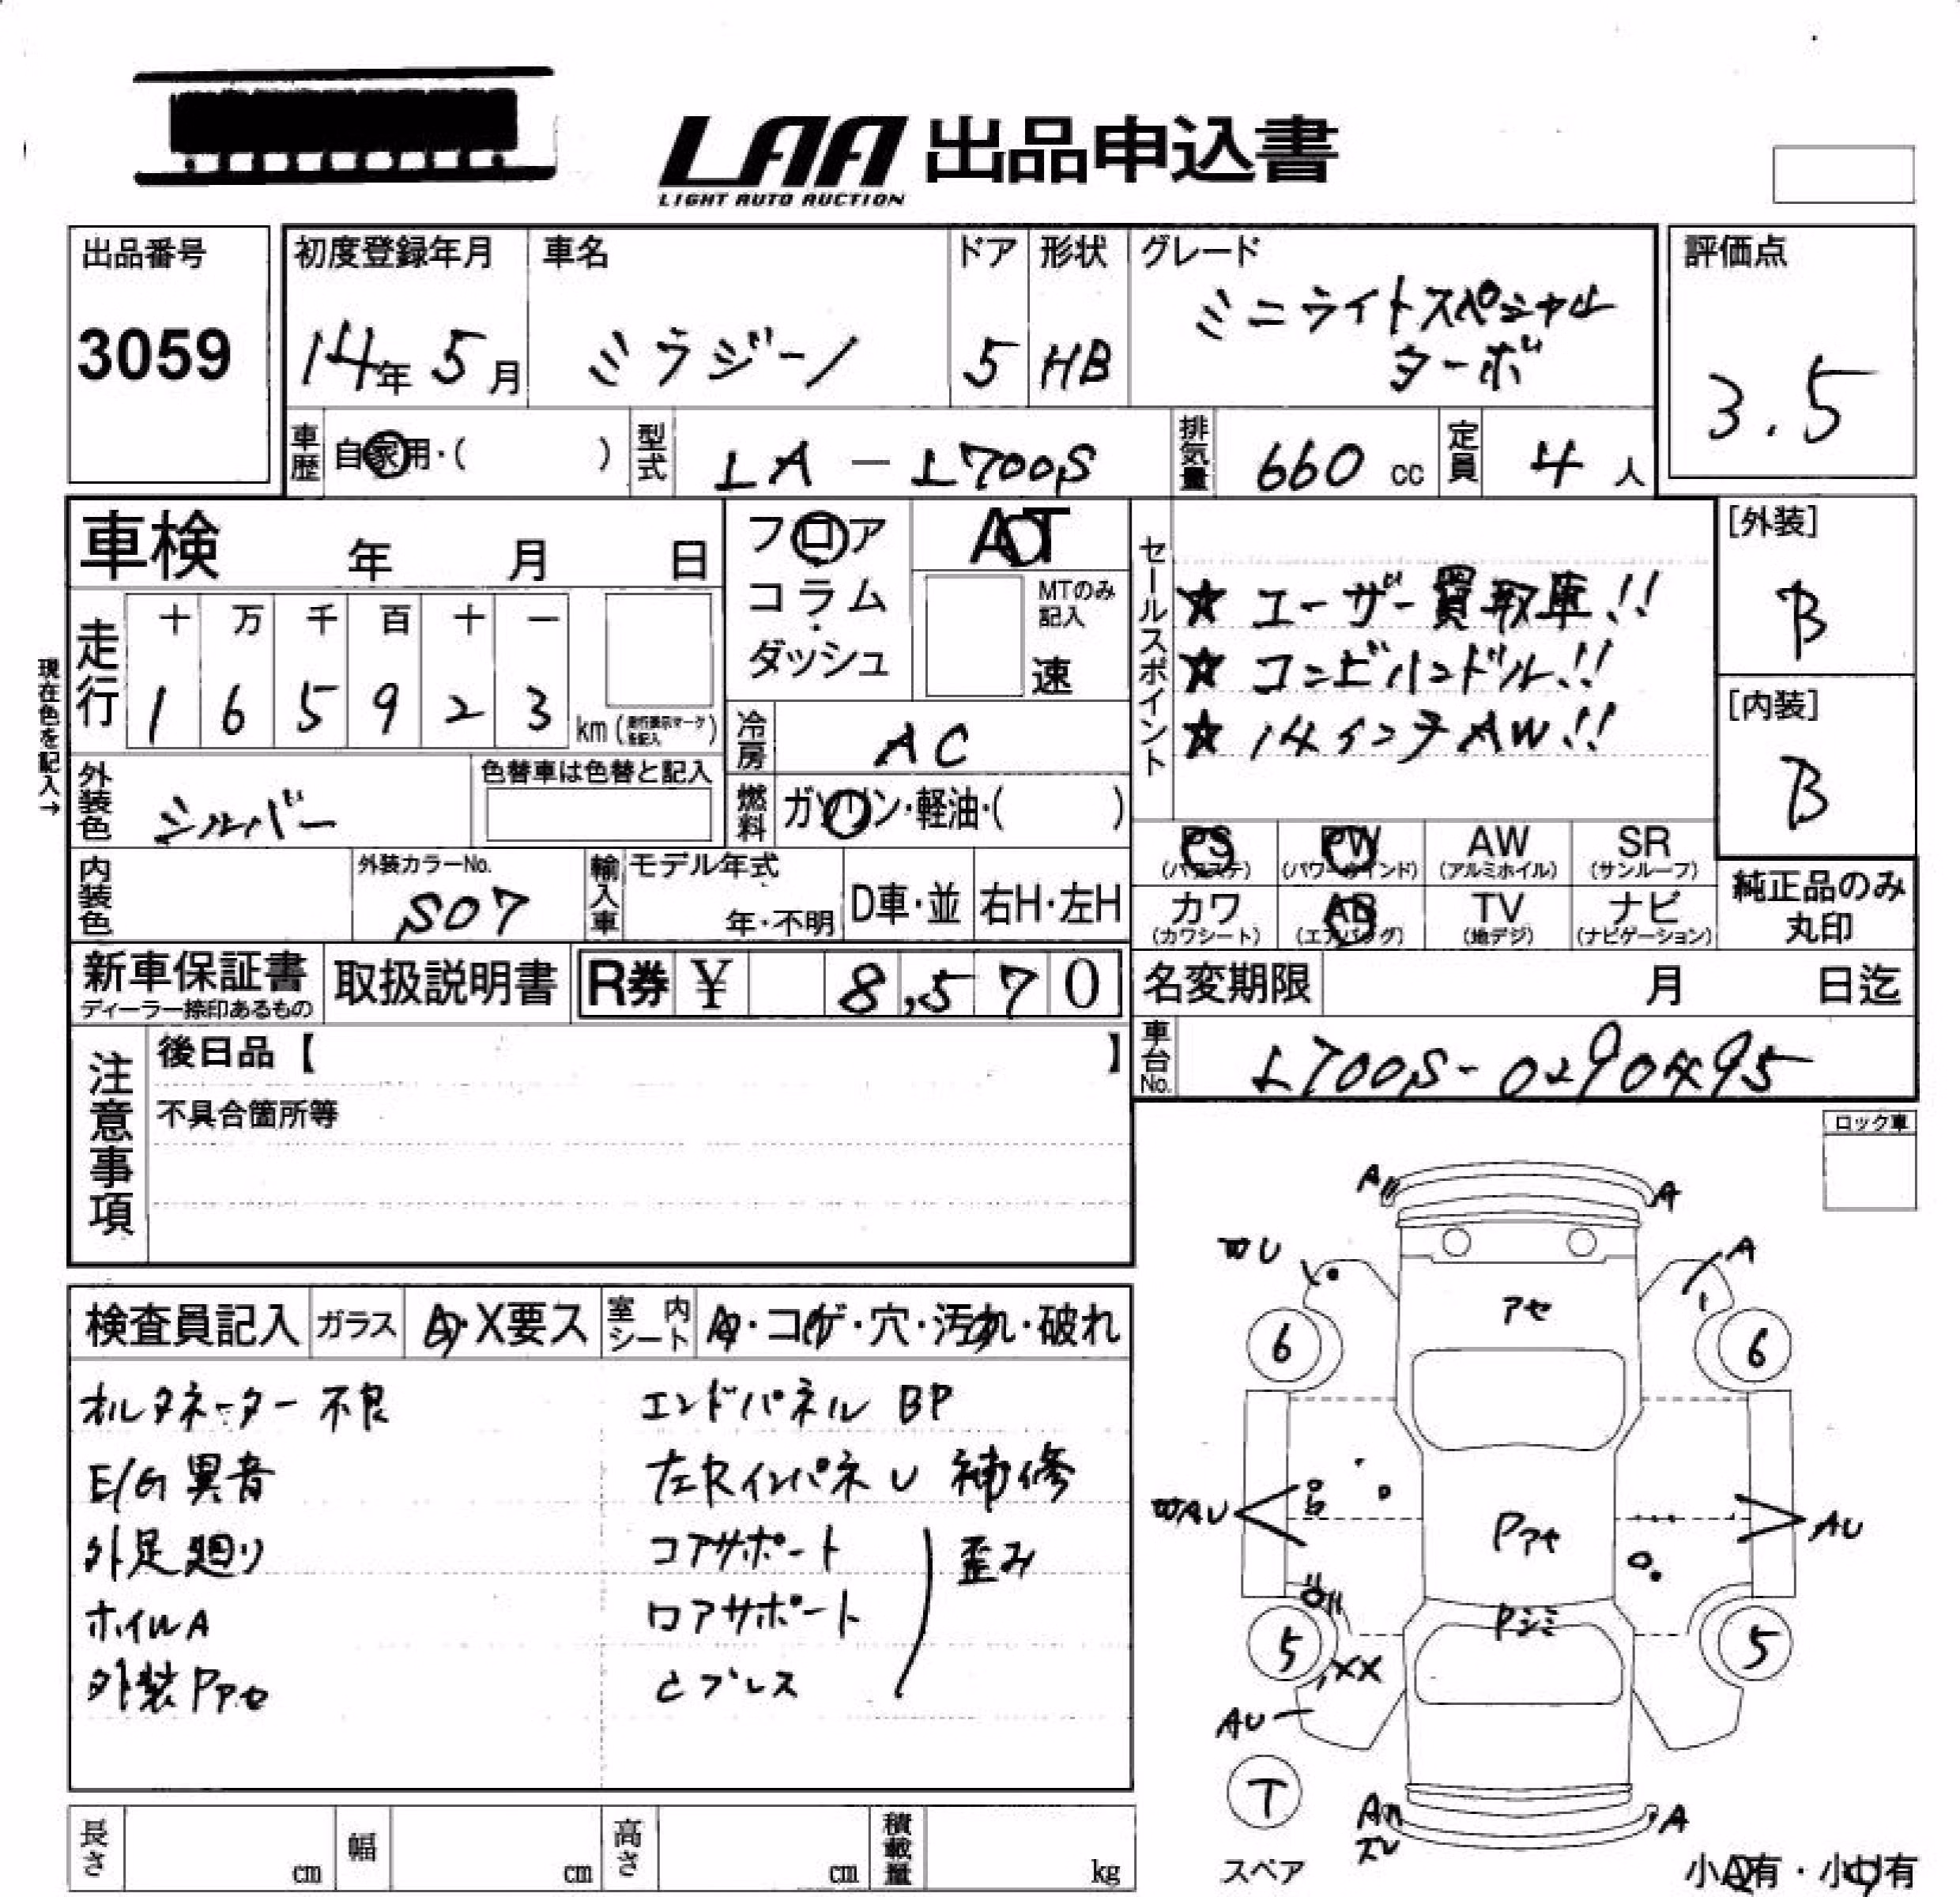 LAA 出品申込書
LIGHT AUTO AUCTION
出品番号
3059
初度登録年月
14年 5月
車名
ミラジーノ
ドア
5
形状
HB
グレード
ミニライトスペシャル
ターボ
評価点
3.5
車歴 自家用・( )
型式 LA-L700S
排気量 660 cc
定員 4人
車検 年 月 日
フロア
コラム
ダッシュ
AT
MTのみ記入
速
セールスポイント
★ユーザー買取車!!
★コンビハンドル!!
★14インチAW!!
[外装]
B
[内装]
B
現在色を記入→
走行
十 万 千 百 十 一
1 6 5 9 2 3 km (走行表示マークを記入)
冷房 AC
外装色 シルバー
色替車は色替と記入
燃料 ガソリン・軽油・( )
PS (パワステ)
PW (パワーウインド)
AW (アルミホイル)
SR (サンルーフ)
カワ (カワシート)
AB (エアバッグ)
TV (地デジ)
ナビ (ナビゲーション)
純正品のみ
丸印
内装色
外装カラーNo.
S07
輸入車
モデル年式
年・不明
D車・並
右H・左H
新車保証書
ディーラー捺印あるもの
取扱説明書
R券 ¥ 8,570
名変期限 月 日迄
車台No. L700S-0290495
注意事項
後日品【 】
不具合箇所等
ロック車
検査員記入
ガラス A・X要ス
室内シート A・コゲ・穴・汚れ・破れ
オルタネーター不良
E/G異音
外足廻り
ホイルA
外装Pアセ
エンドパネル BP
左Rインパネ U 補修
コアサポート
ロアサポート
歪み
A
A
U
A
アセ
6
6
AU
AU
Pアセ
Pシミ
5
5
XX
AU
T
スペア
A
ズレ
A
小A有・小U有
長さ cm
幅 cm
高さ cm
積載量 kg